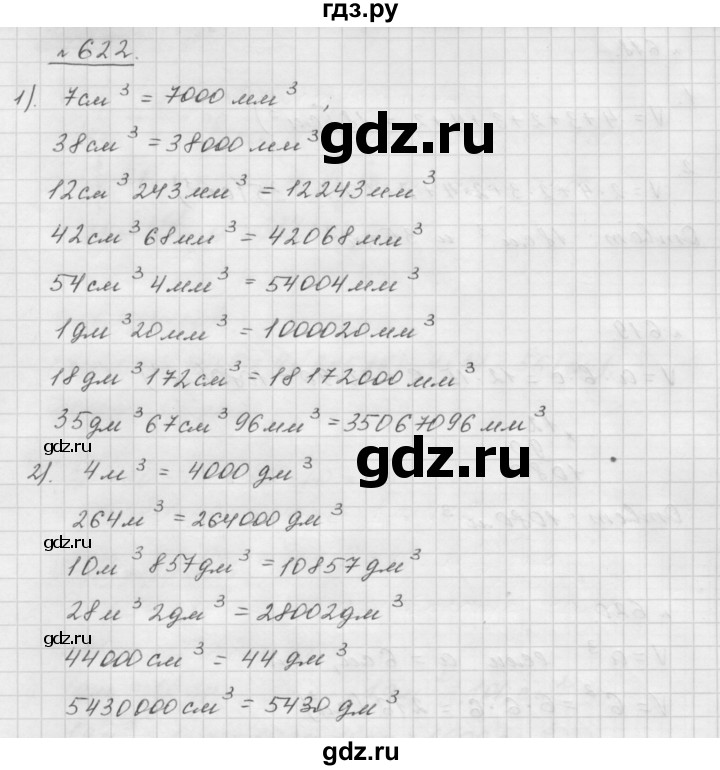 гдз.ру
№ 622.
1). 7см³ = 7000 мм³,
38см³ = 38000 мм³
gdz.ru
12см³ 243мм³ = 12243мм³
42см³ 68мм³ = 42068мм³
54см³ 4мм³ = 54004мм³
1дм³ 20мм³ = 1000020мм³
18дм³ 172см³ = 18172000 мм³
35дм³ 67см³ 96мм³ = 35067096 мм³
gdz.ru
gdz.ru
2). 4м³ = 4000 дм³
264м³ = 264000 дм³
gdz.ru
10м³ 857дм³ = 10857 дм³
28м³ 2дм³ = 28002дм³
gdz.ru
44000см³ = 44 дм³
5430000см³ = 5430 дм³
gdz.ru